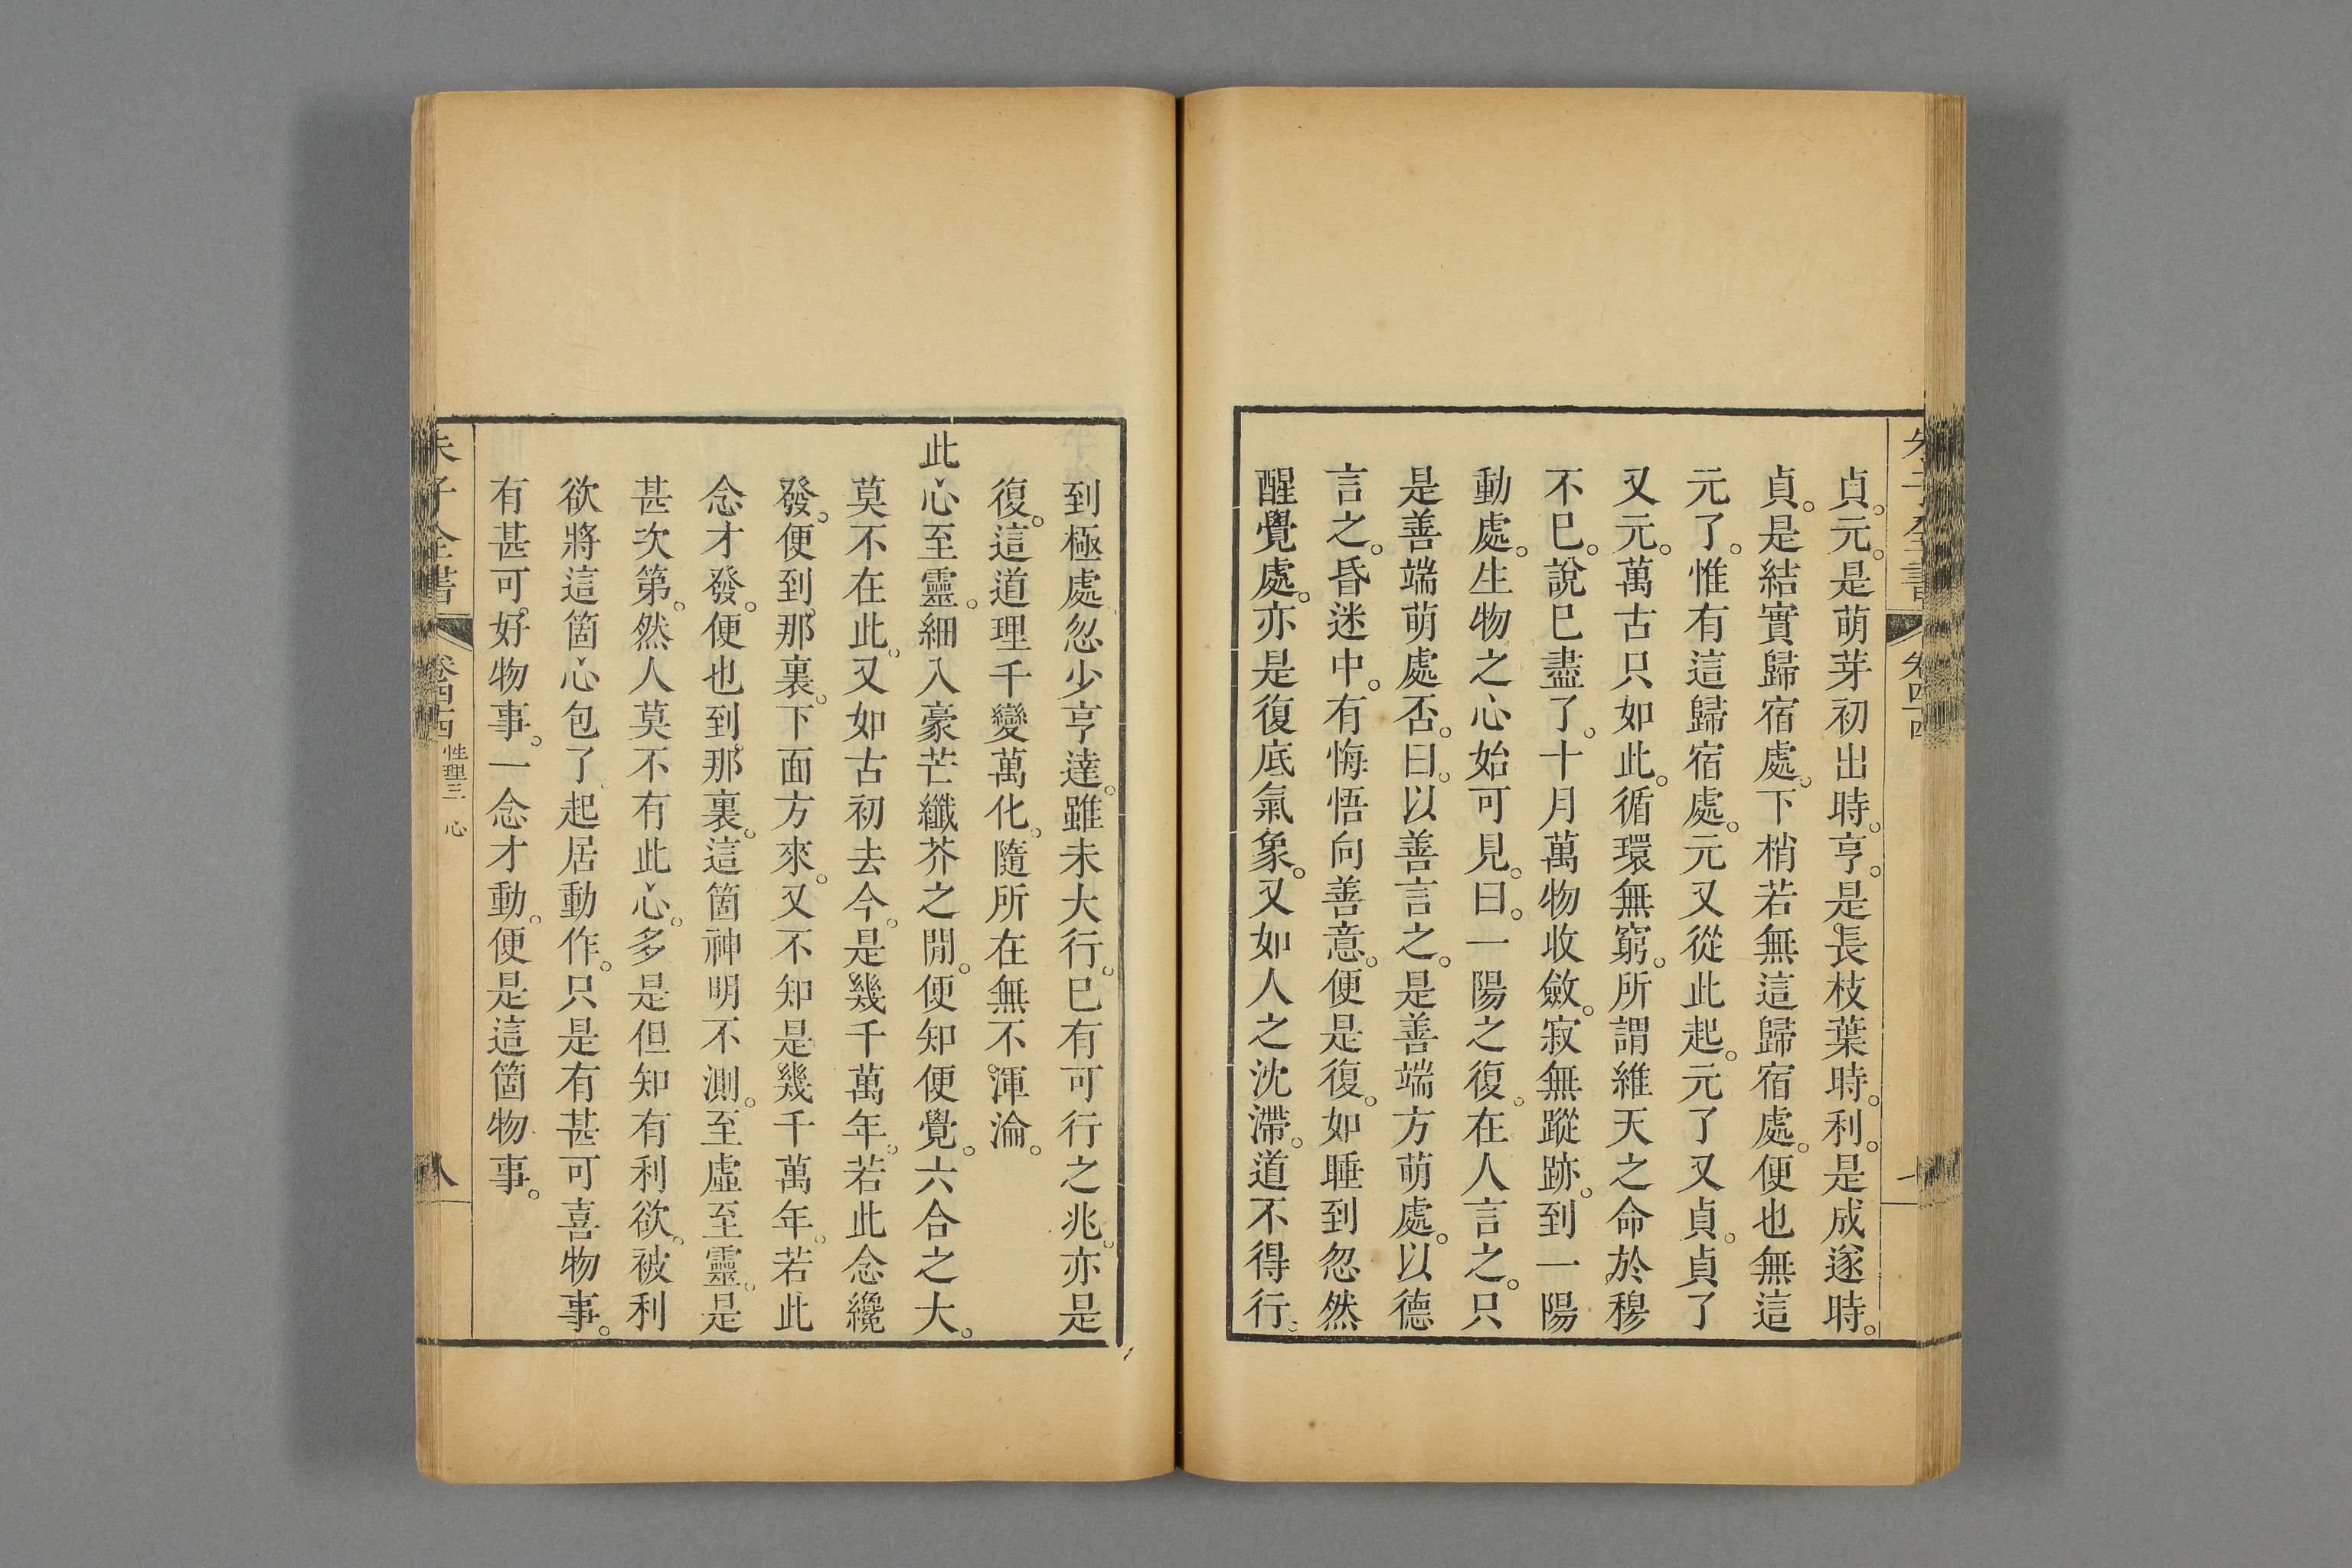 貞。元。是萌芽初出時。亨。是長枝葉時。利。是成遂時。
貞。是結實歸宿處。下梢若無這歸宿處。便也無這
元了。惟有這歸宿處。元又從此起。元了又貞。貞了
又元。萬古只如此。循環無窮。所謂維天之命於穆
不已。說已盡了。十月萬物收斂。寂無蹤跡。到一陽
動處。生物之心始可見。曰。一陽之復。在人言之。只
是善端萌處否。曰。以善言之。是善端方萌處。以德
言之。昏迷中。有悔悟向善意。便是復。如睡到忽然
醒覺處。亦是復底氣象。又如人之沈滯。道不得行。
到極處忽少亨達。雖未大行。已有可行之兆。亦是
復。這道理千變萬化。隨所在無不渾淪。
此心至靈。細入豪芒纖芥之閒。便知便覺。六合之大。
莫不在此。又如古初去今。是幾千萬年。若此念纔
發。便到那裏。下面方來。又不知是幾千萬年。若此
念才發。便也到那裏。這箇神明不測。至虛至靈。是
甚次第。然人莫不有此心。多是但知有利欲。被利
欲將這箇心包了起居動作。只是有甚可喜物事。
有甚可好物事。一念才動。便是這箇物事。
朱子全書 卷四十四 性理三 心 八